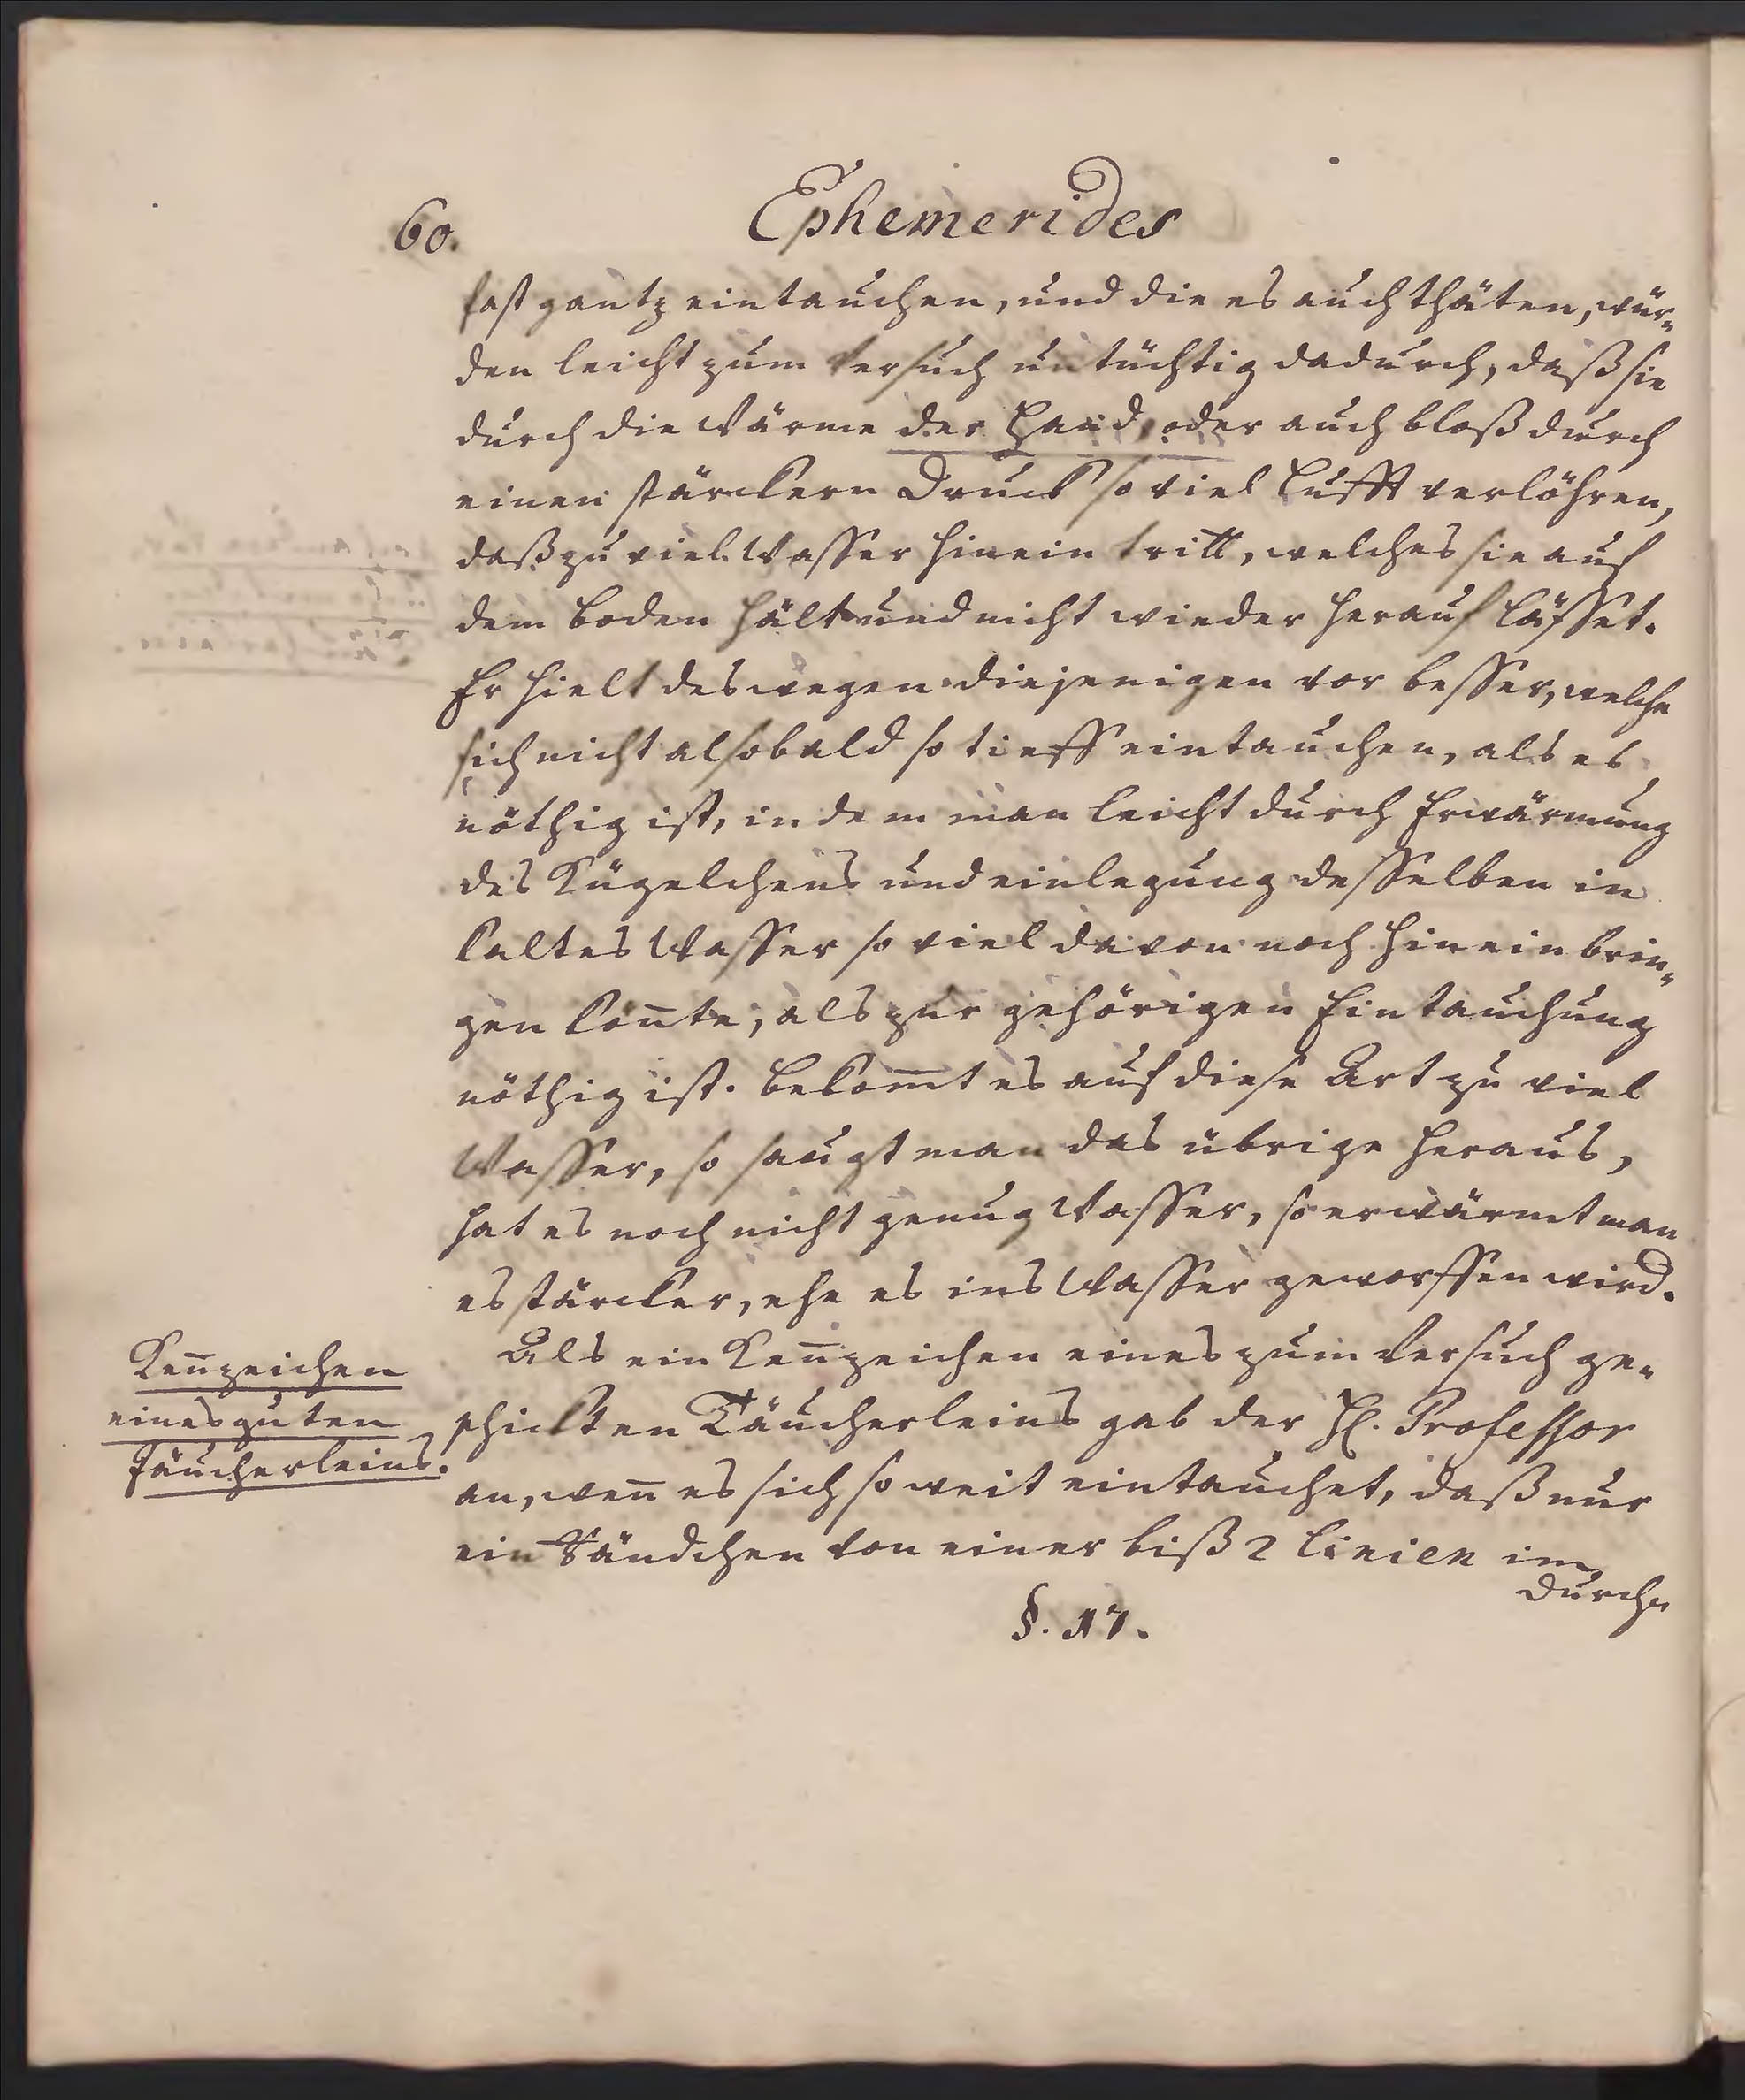 60.
Ephemerides
fast gantz eintauchen, und die es auch thäten, wür-
den leicht zum Versuch untüchtig dadurch, daß sie
durch die Wärme der Hand, oder auch bloß durch
einen stärckern Druck so viel Lufft verlöhren,
daß zu viel Wasser hinein tritt, welches sie auf
dem Boden hält und nicht wieder herauf lässet.
Er hielt deswegen diejenigen vor besser, welche
sich nicht alsobald so tieff eintauchen, als es
nöthig ist, indem man leicht durch Erwärmung
des Kügelchens und einlegung desselben in
kaltes Wasser so viel davon noch hinein brin-
gen kon̄te, als zur gehörigen Eintauchung
nöthig ist. Bekom̄t es auf diese Art zu viel
Wasser, so saugt man das übrige heraus,
hat es noch nicht genug Wasser, so erwärmt man
es stärcker, ehe es ins Wasser geworffen wird.
Als ein Ken̄zeichen eines zum Versuch ge-
schickten Täucherleins gab der H. Professor
an, wen̄ es sich so weit eintauchet, daß nur
ein Ständchen von einer biß 2 Linien im
Durch-
Ken̄zeichen
eines guten
Täucherleins.
§. 17.